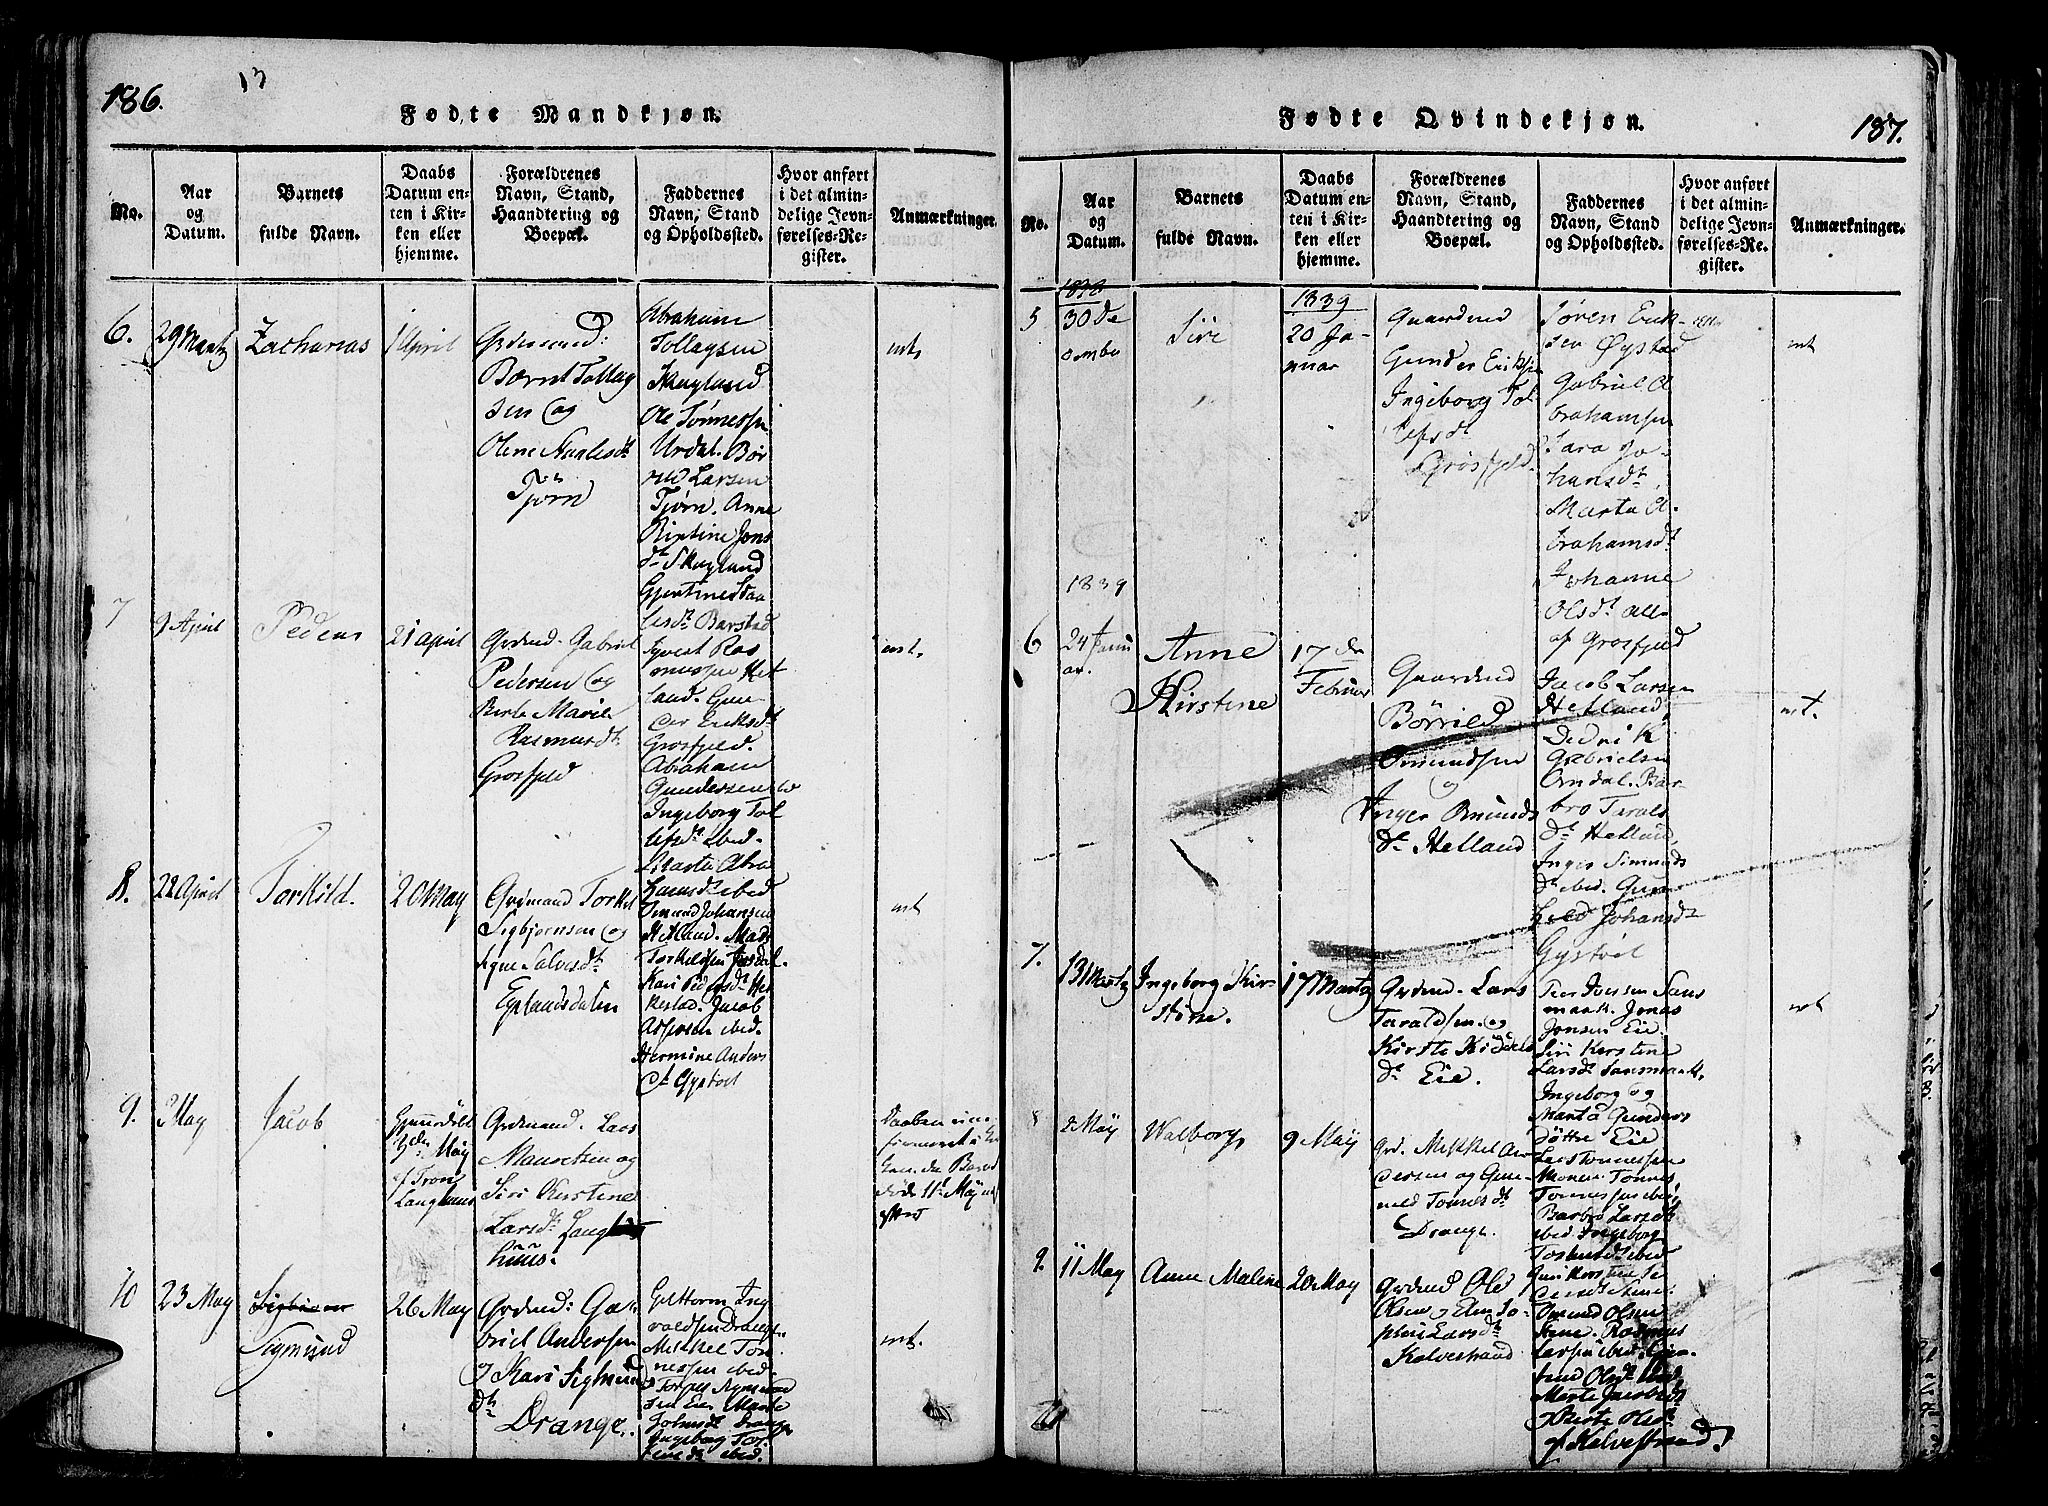 186.
13
Fødte Mandkjøn.
No.
Aar
og
Datum.
Barnets
fulde Navn.
Daabs
Datum en-
ten i Kir-
ken eller
hjemme.
Forældrenes
Navn, Stand,
Haandtering og
Boepæl.
Faddernes
Navn, Stand
og Opholdssted.
Hvor anført
i det almin-
delige Jevn-
førelses-Re-
gister.
Anmærkninger.
6.
29 Martz
Zacharias
1 April
Grdmand:
Bærnt Tollag
sen og
Olene
Tjørn
Abraham
Tollagsen
Skagland
Ole Tønnessen
Urdal. Bør
rild Larsen
Tjørn. Anne
Kirstine Jons
dt Skagland
Gjertine
lesdt Barstad
int.
7
9 April
Peder
21 April
Grdmd. Gabriel
Pedersen og
Berte Marie
Rasmusdt.
Grosfjeld
Syvert Ras
mussen Het
land. Gun
der Eriksdt
Grosfjeld.
Abraham
Gundersen
Ingeborg Tol
lefsdt. ibed.
Marta Abra
hamsdt ibed
int.
8.
22 April
Torkild.
20 May
Grdmand Torkel
Sigbjørnsen og
Signe Salvesdt.
Eplandsdalen
Omund Johansen
Hetland. Mads
Torkelsen
Kari Pedersdt. Hes
kestad. Jacob
Aspersen ibed.
Hermine Anders
dt Gystøl
int
9.
2 May
Jacob
3 den May
af Tron
Langhuus
Grdmand. Lars
Mauretsen og
Siri Kirstine
Larsdt. Lang
huus.
Daaben
døde 11t May
10
23 May
Sigmund
26 May
Grdmd: Ga
briel Andersen
og Kari Sigmund
dt.
Drange.
Guttorm Ing
valdsen Drange.
Mikkel Ton
nessen ibed.
Torger Sigmund
sen Eie. Marte
Ingeborg Tor
ibed.
int.
187.
Fødte Qvindekjøn.
No.
Aar
og
Datum.
Barnets
fulde Navn.
Daabs
Datum en-
ten i Kir-
ken eller
hjemme.
Forældrenes
Navn, Stand,
Haandtering og
Boepæl.
Faddernes
Navn, Stand
og Opholdssted.
Hvor anført
i det almin-
delige Jevn-
førelses-Re-
gister.
Anmærkninger.
5
1838
30 De
cember
Siri
1839
20 Ja-
nuar
Gaardmd
Gunder Eriksen
Ingeborg Tol
lefsdt
Grosfjeld.
Søren Erik-
sen Øystad
Gabriel A
brahamsen
Sara Jo-
hansdt.
Marta A.
brahamsdt
Johanne
Olsdt alle
af Grosfjeld
int
1839
6
24 Janu
ar.
Anne
Kirstine
17 de
Februar
Gaardmd
Børrild
Omundsen
og
Inger Omunds
dt. Helland
Jacob Larsen
Helland,
Dedrik
Gabrielsen
Orrdal. Bar-
bro Tarals
dt Helland,
Inger Simunds
dt ibed. Gun
hild Johansdt
Gystøl
int.
7.
13 Martz
Ingeborg Kir-
stine.
17 Martz
Grdmd. Lars
Taraldsen. og
Kirste Kiddels
dt Eie.
Peer Iversen Sans
mark. Jonas
Jonsen Eie.
Siri Kerstine
Larsdt Sansmark.
Ingeborg og
Marta Gunders
døttre Eie
int
8
2 May
Walborg
9 May
Grd. Mikkel An
dersen og Gun
nild Tonnesdt.
Drange.
Lars Tonnessen
Tonnessen ibed,
Barbro Larsdt
ibed Ingeborg
ibed
9.
11 May
Anne Maline
20 May
Grdmd Ole
Olsen og Ann So-
phie Larsdt
Kalvestrand
Omund Olsen
Stene. Rasmus
Larsen ibed.
Olsdt ibed.
Marte Jacobsdt
Berte Olsdt.
af Kalvestrand.